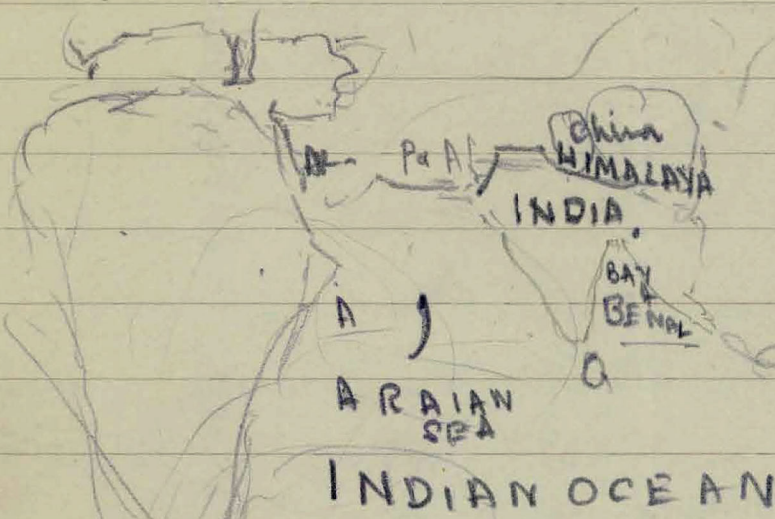 China
Pa A
HIMALAYA
INDIA
BAY
BENAL
A
ARAIAN
SEA
INDIAN OCEAN